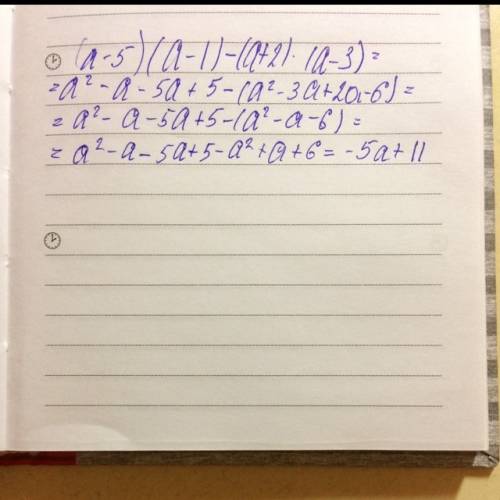 (a-5)(a-1)-(a+2)·(a-3)=
=a²-a-5a+5-(a²-3a+2a-6)=
=a²-a-5a+5-(a²-a-6)=
=a²-a-5a+5-a²+a+6=-5a+11